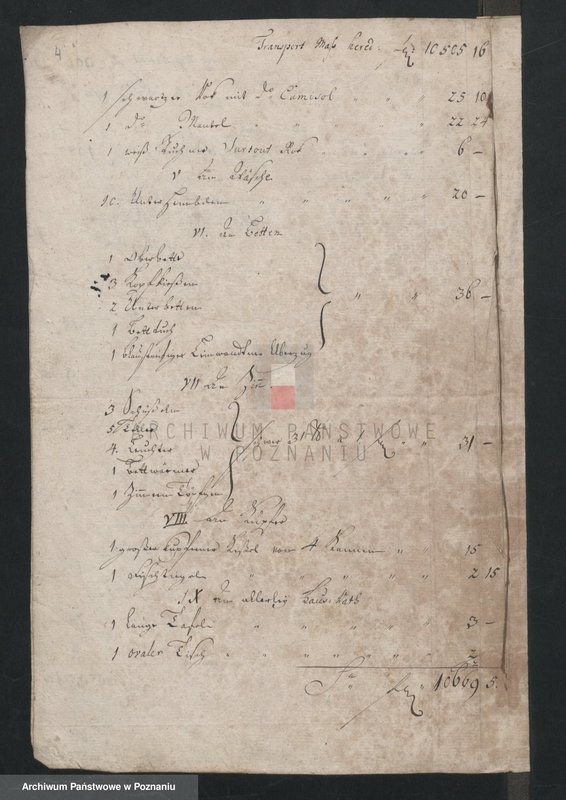 4
Transport Mass hered: 10505 16
1 schwartzer Rok mit do Camisol " " " 23 10
1 do Mantel " " " 22 24
1 weiß Tuchner Surtout Rok " " " 6 —
V an Wäsche
10. Unter Hembden " " " " " 20 —
VI. an Betten
1 Oberbette
3 Kopfkießen
2 Unterbetten " " 36 —
1 Bettuch
1 Leinwandtner Uberzug
VII an Zinn
3 Schüßeln
5 Teller
4. Leuchter 31 —
1 Bettwärmer
1
VIII an Kupfer
1 großer kupferner Keßel von 4 Kannen " " 15
1 Fischtiegel " " " " " 2 15
IX an allerley Haus Rath
1 lange Tafel " " " " " 3 —
1 ovaler Tisch " " " " " 2
Sa 10669 5.
ARCHIWUM PAŃSTWOWE
W POZNANIU
Archiwum Państwowe w Poznaniu